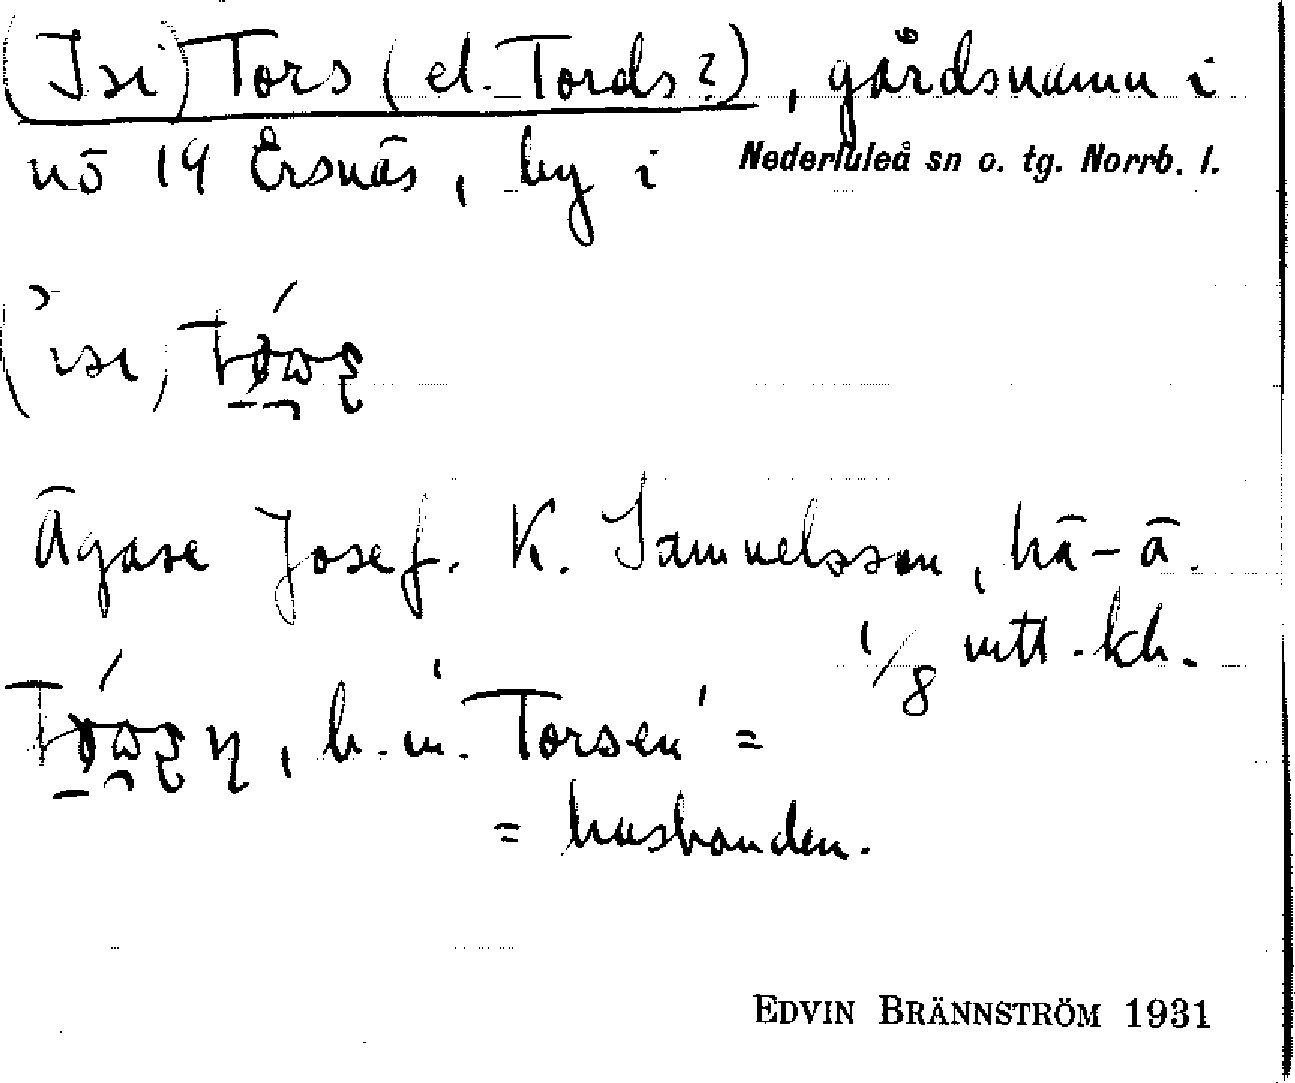 (Isi) Tors (el. Tords?), gårdsnamn i
nö 19 Ersnäs, by i Nederluleå sn o. tg. Norrb. l.
(ìsi)
Ägare Josef. K. Samuelsson, hä-ä.
1/8 mtl. kh.
b. m. 'Torsen' =
= husbonden.
EDVIN BRÄNNSTRÖM 1931